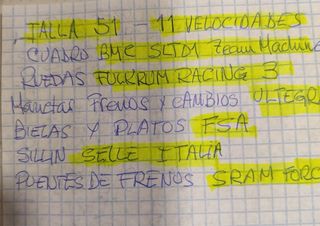 TALLA 51 - 11 VELOCIDADES
CUADRO BMC SLT01 Team Machine
RUEDAS FULCRUM RACING 3
Manetas Frenos y CAMBIOS ULTEGR
BIELAS Y PLATOS FSA
SILLIN SELLE ITALIA
PUENTES DE FRENOS SRAM FORC